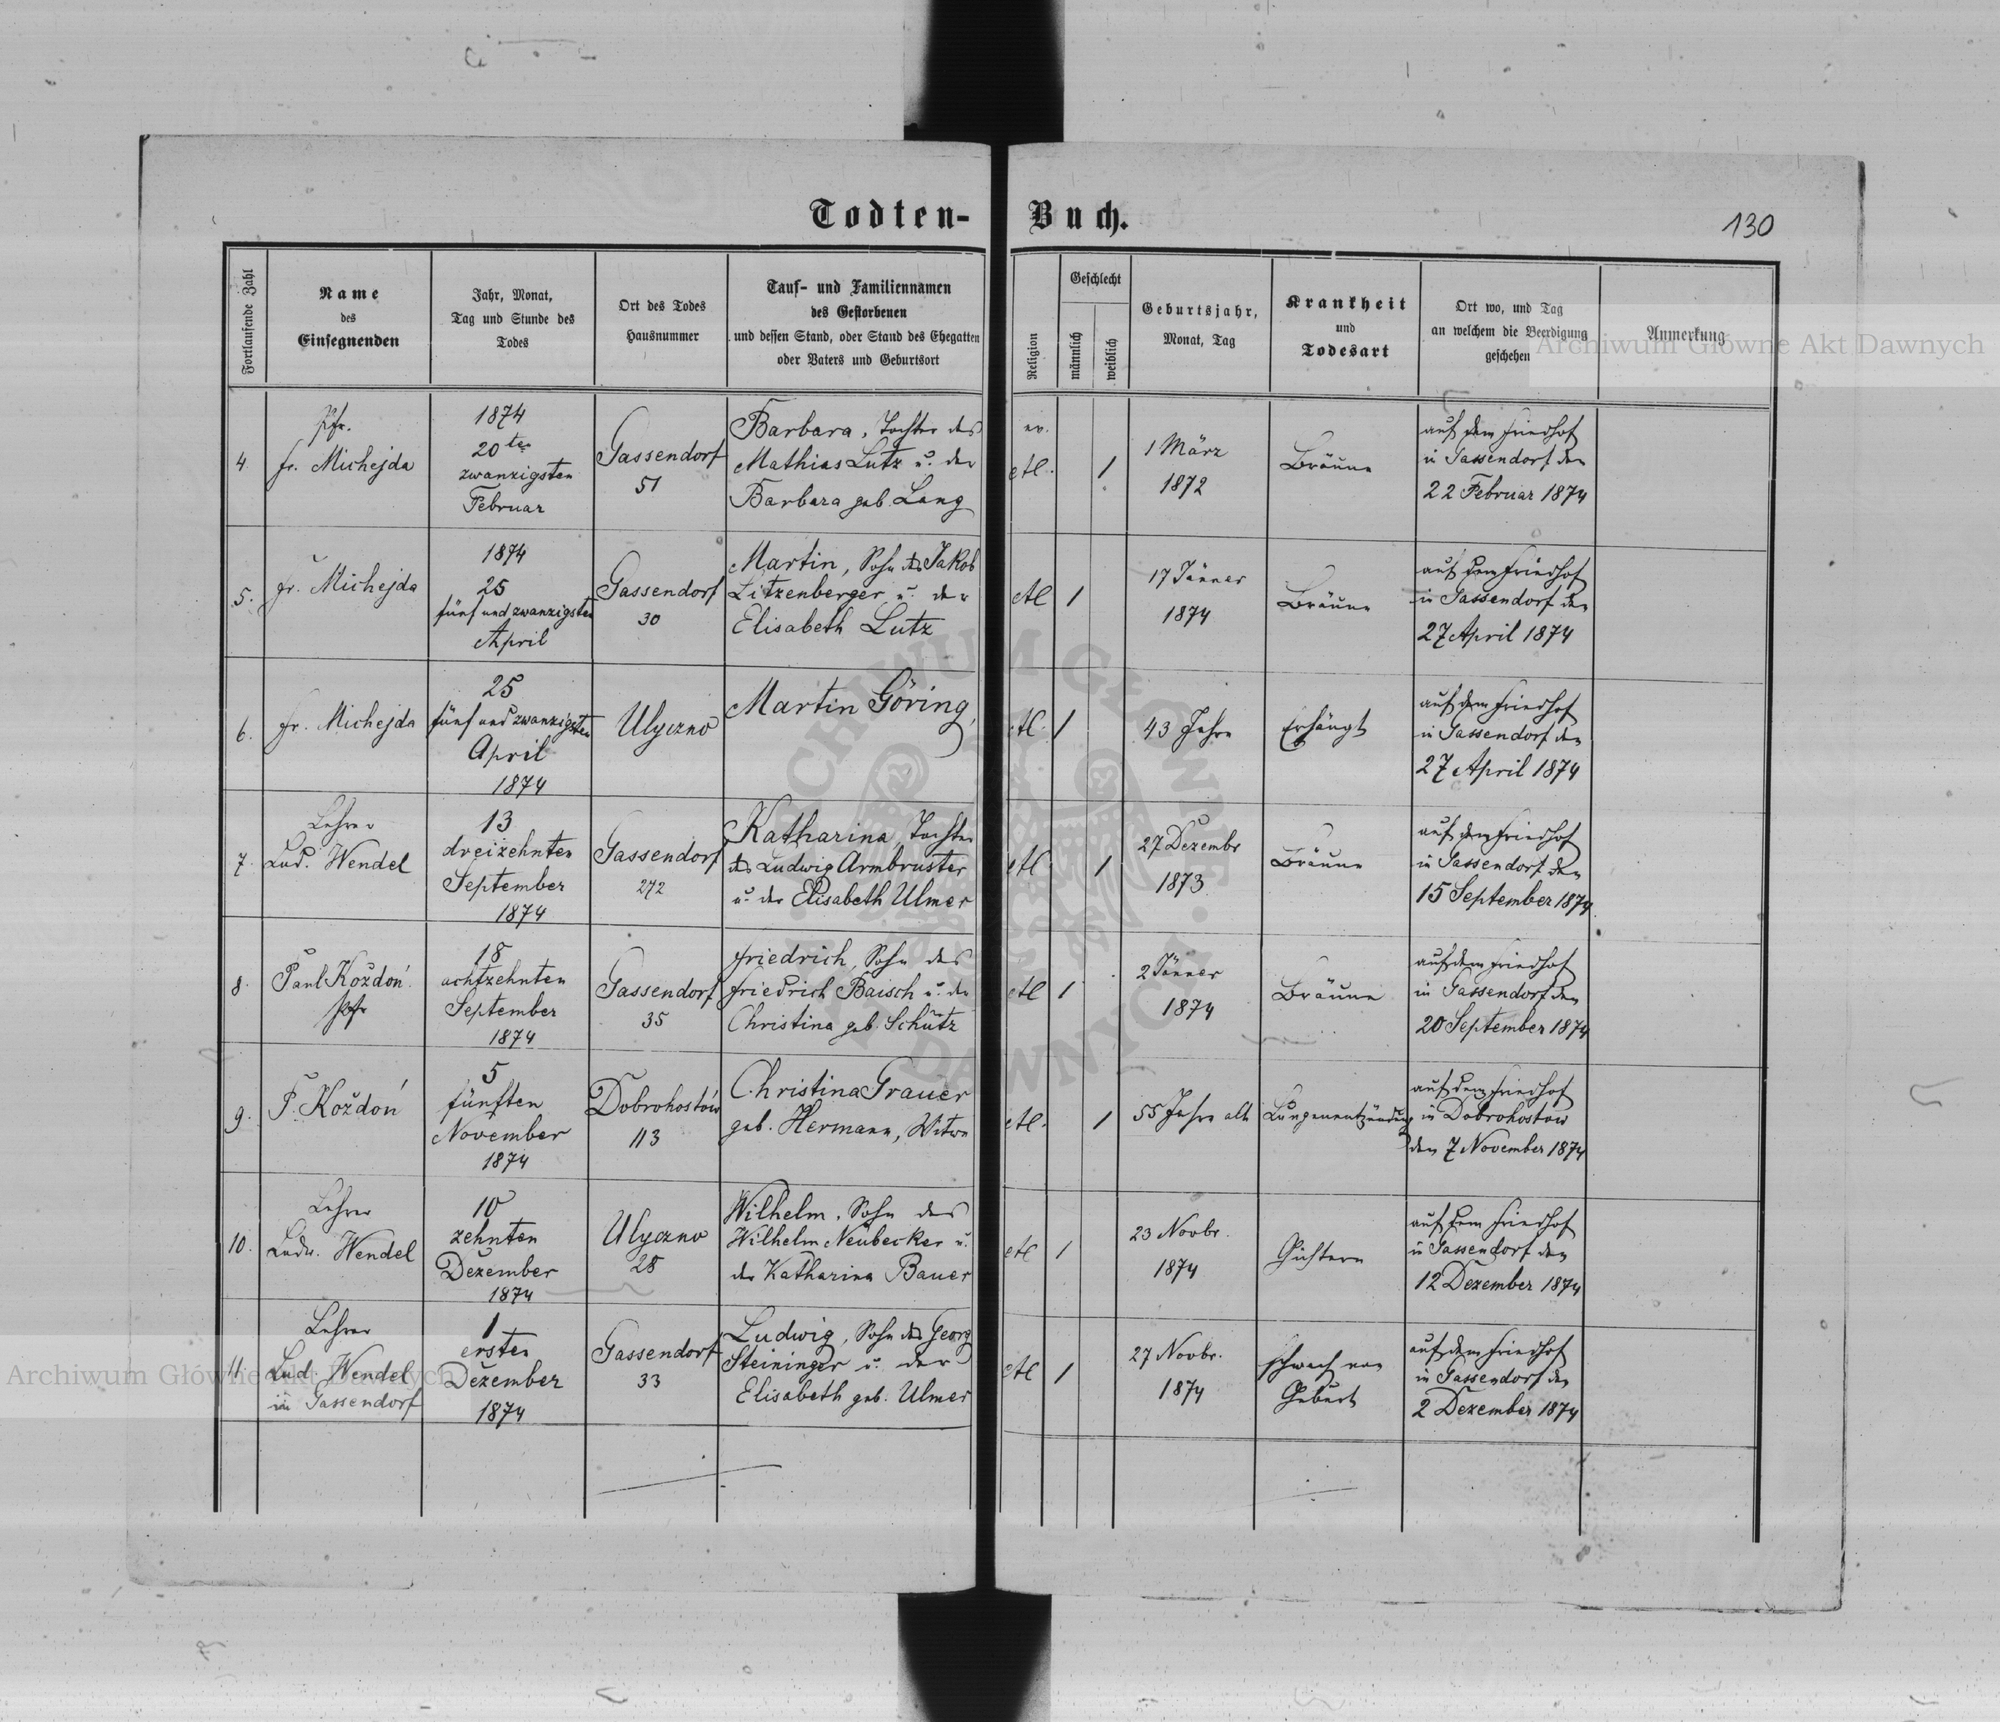 Todten-Buch.
130
Fortlaufende Zahl
Name
des
Einsegnenden
Jahr, Monat,
Tag und Stunde des
Todes
Ort des Todes
Hausnummer
Tauf- und Familiennamen
des Gestorbenen
und dessen Stand, oder Stand des Ehegatten
oder Vaters und Geburtsort
Religion
Geschlecht
männlich
weiblich
Geburtsjahr,
Monat, Tag
Krankheit
und
Todesart
Ort wo, und Tag
an welchem die Beerdigung
geschehen
Anmerkung
4.
Pfr.
Fr. Michejda
1874
20ten
zwanzigsten
Februar
Gassendorf
51
Barbara, Tochter des
Mathias Lutz u. der
Barbara geb. Lang
ev.
AC.
1
1 März
1872
Bräune
auf dem Friedhof
in Gassendorf den
22 Februar 1874
5.
Fr. Michejda
1874
25
fünf und zwanzigsten
April
Gassendorf
30
Martin, Sohn des Jakob
Litzenberger u. der
Elisabeth Lutz
AC
1
17 Jänner
1874
Bräune
auf dem Friedhof
in Gassendorf den
27 April 1874
6.
Fr. Michejda
25
fünf und zwanzigsten
April
1874
Ulyczno
Martin Göring,
AC.
1
43 Jahre
Erhängt
auf dem Friedhof
in Gassendorf den
27 April 1874
7.
Lehrer
Lud. Wendel
13
dreizehnten
September
1874
Gassendorf
272
Katharina, Tochter
des Ludwig Armbruster
u. der Elisabeth Ulmer
AC
1
27 Dezembr
1873
Bräune
auf dem Friedhof
in Gassendorf den
15 September 1874
8.
Paul Kożdoń
Pfr
18
achtzehnten
September
1874
Gassendorf
35
Friedrich, Sohn des
Friedrich Baisch u. der
Christina geb. Schütz
AC
1
2 Jänner
1874
Bräune
auf dem Friedhof
in Gassendorf den
20 September 1874
9.
P. Kożdoń
5
fünften
November
1874
Dobrohostów
113
Christina Grauer
geb. Hermann, Witwe
AC.
1
55 Jahre alt
Lungenentzündung
auf dem Friedhof
in Dobrohostów
den 7 November 1874
10.
Lehrer
Ludw. Wendel
10
zehnten
Dezember
1874
Ulyczno
28
Wilhelm, Sohn des
Wilhelm Neubecker u.
der Katharina Bauer
AC
1
23 Novbr.
1874
Gichtern
auf dem Friedhof
in Gassendorf den
12 Dezember 1874
11
Lehrer
Lud. Wendel
in Gassendorf
1
ersten
Dezember
1874
Gassendorf
33
Ludwig, Sohn des Georg
Steininger u. der
Elisabeth geb. Ulmer
AC
1
27 Novbr.
1874
schwach von
Geburt
auf dem Friedhof
in Gassendorf den
2 Dezember 1874
Archiwum Główne Akt Dawnych
Archiwum Główne Akt Dawnych
ARCHIWUM GŁÓWNE AKT DAWNYCH